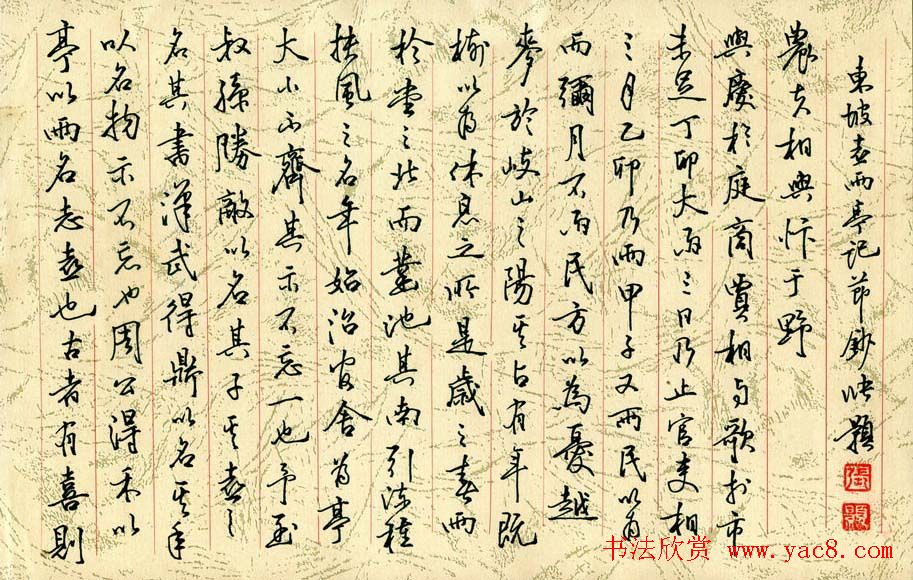 亭以雨名志喜也古者有喜則
以名物示不忘也周公得禾以
名其書漢武得鼎以名其年
叔孫勝敵以名其子其喜之
大小不齊其示不忘一也予至
扶風之名年始治官舍為亭
於堂之北而鑿池其南引流種
樹以為休息之所是歲之春雨
麥於岐山之陽其占有年既
而彌月不雨民方以為憂越
三月乙卯乃雨甲子又雨民以為
未足丁卯大雨三日乃止官吏相
與慶於庭商賈相与歌於市
農夫相與忭于野
東坡喜雨亭記節鈔 題
书法欣赏 www.yac8.com